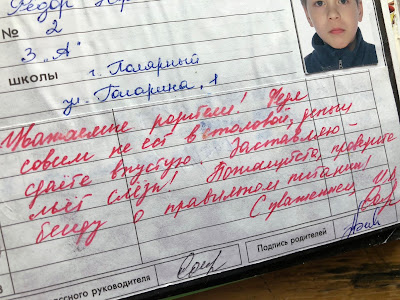 Федор
№ 2
3 „А"
школы г. Полярный
ул. Гагарина, 1
Уважаемые родители! Федя
совсем не ест в столовой, деньги
сдаёте впустую. Заставляю -
льёт слёзы! Пожалуйста, проведите
беседу о правильном питании!
С уважением,
ссного руководителя
Подпись родителей